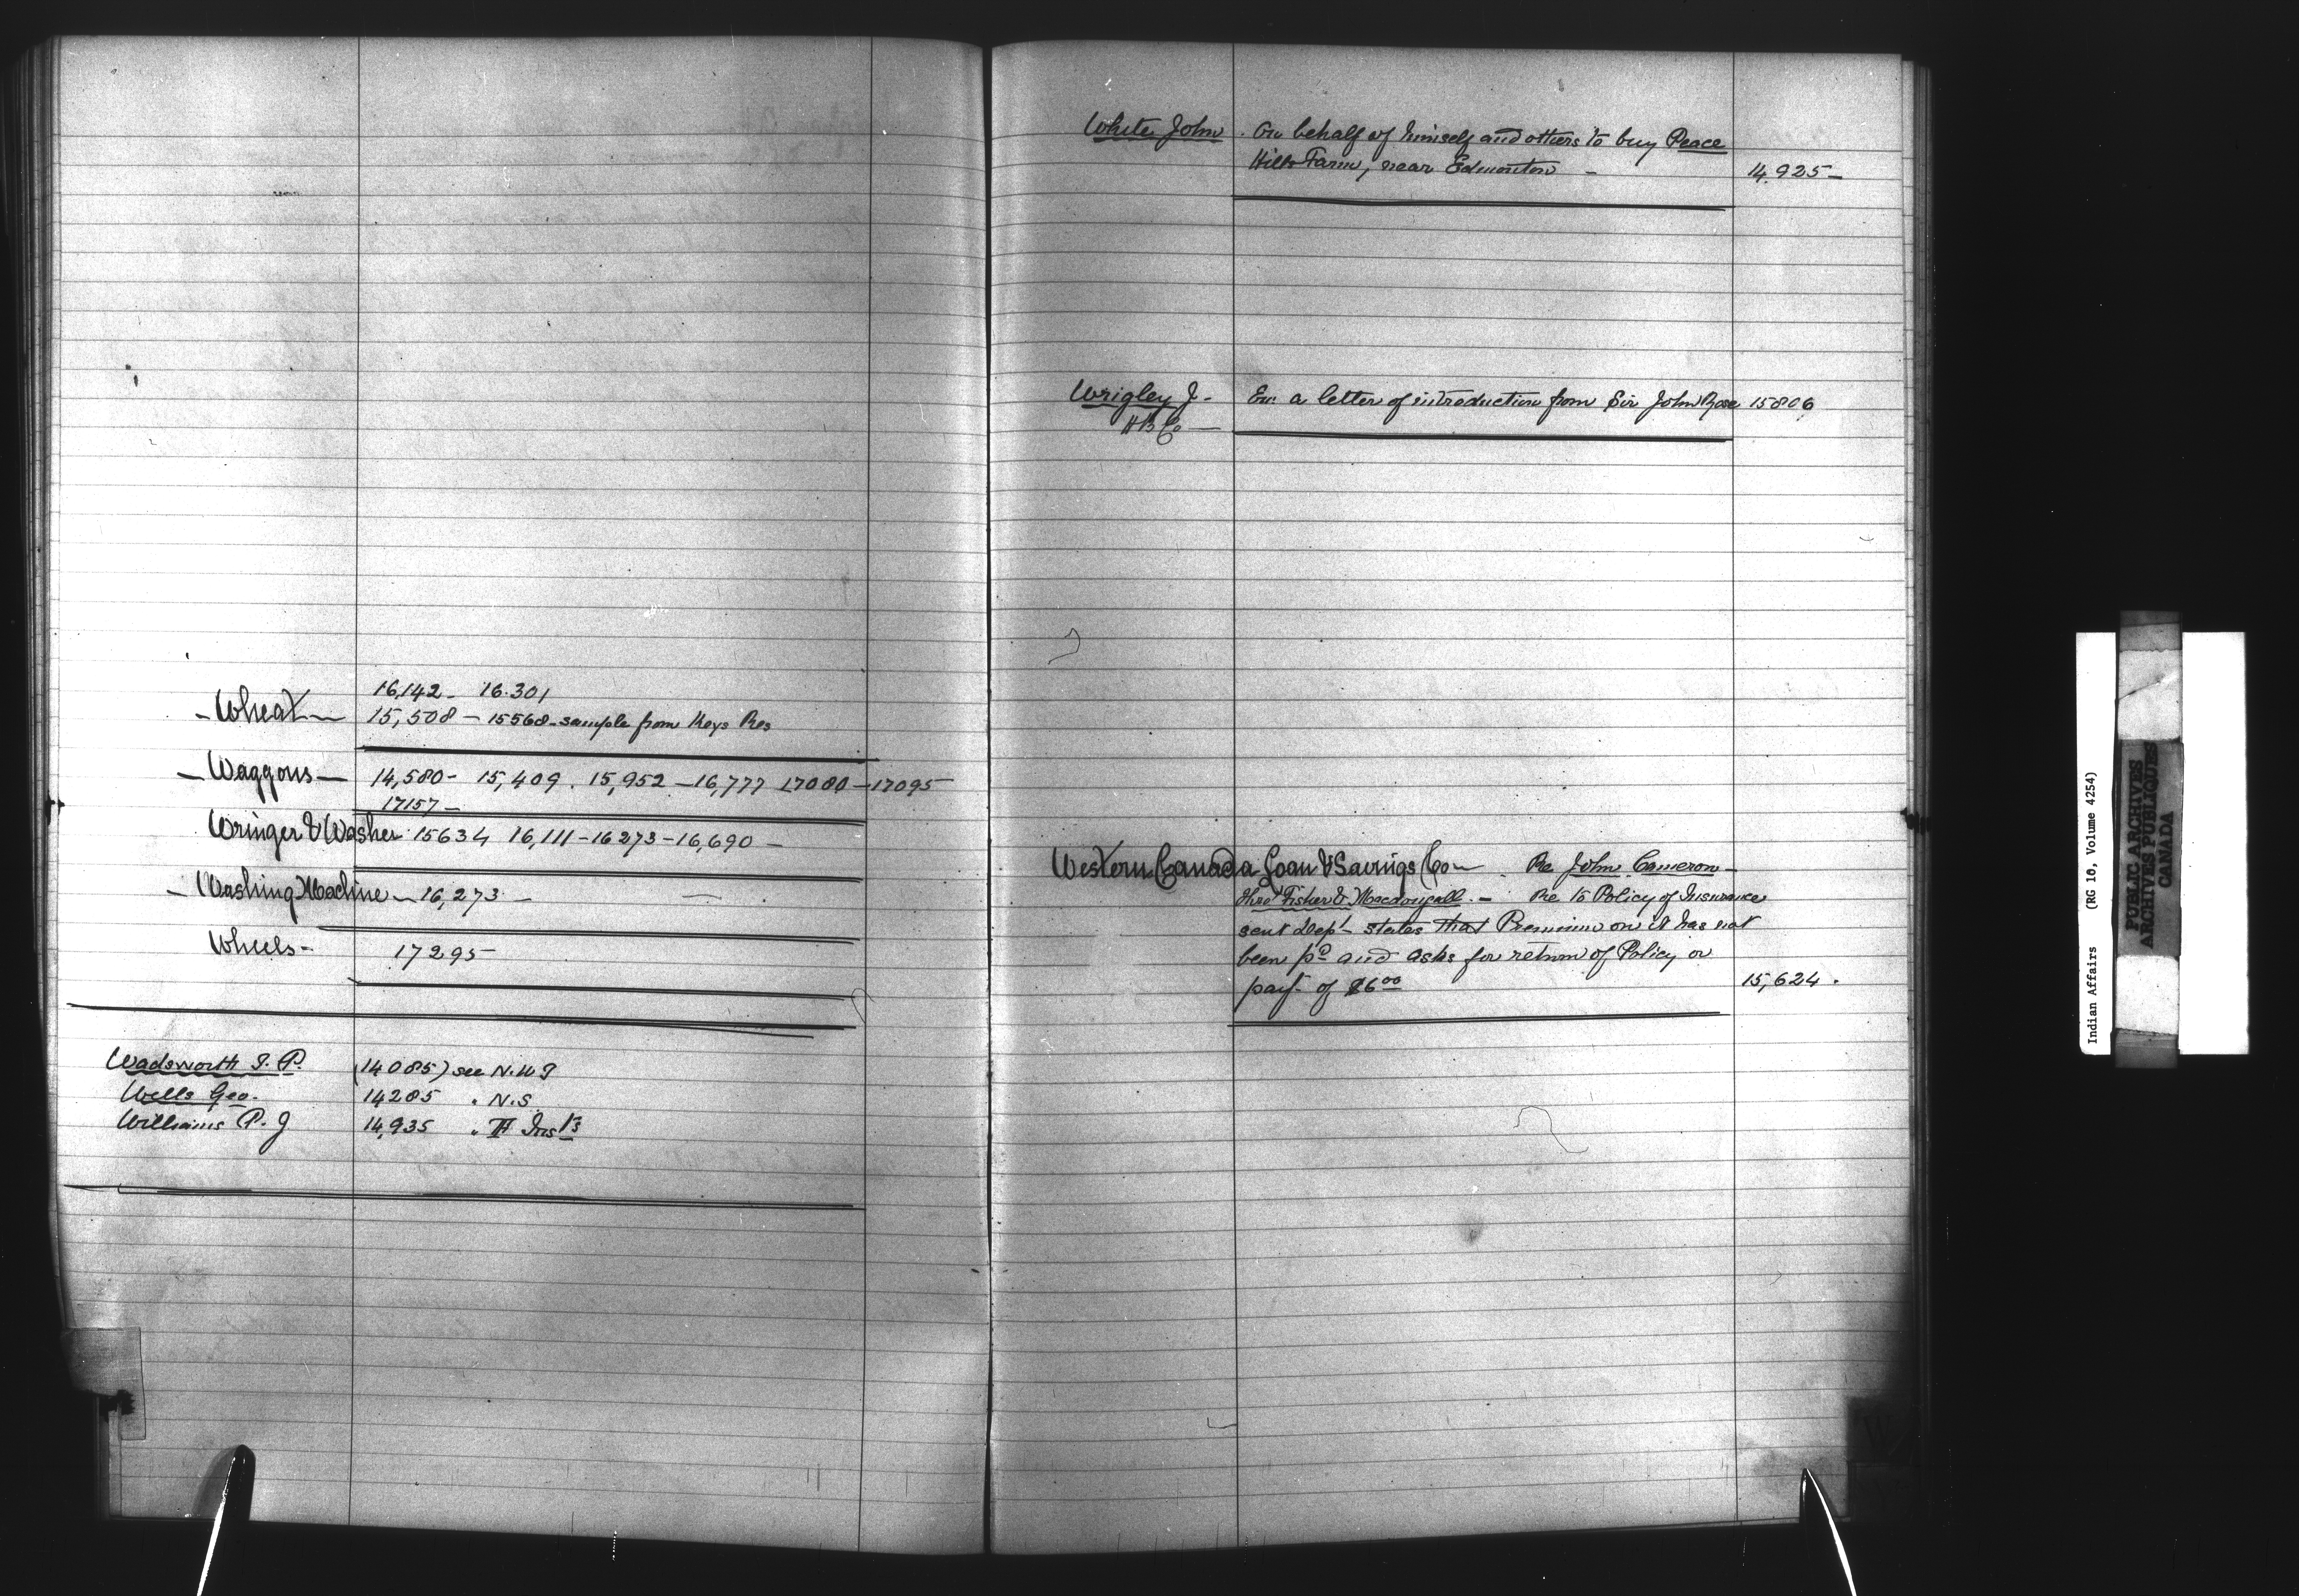 16,142 - 16.301
- Wheat - 15,508 - 15568 - sample from Keys Res
- Waggons - 14,580 - 15,409 . 15,952 - 16,777 17080 - 17095
17157 -
Wringer & Washer 15634 16,111 - 16273 - 16,690 -
- Washing Machine - 16,273 -
Wheels - 17295 -
Wadsworth T. P. (14085) see N.W.T
Wells Geo. 14285 " N.S
Williams P. J 14,935 "
White John . On behalf of himself and others to buy Peace
Hills Farm, near Edmonton - 14,925 -
Wrigley J - Enc a letter of introduction from Sir John Rose 15806
H B Co -
Western Canada Loan & Savings Co - Re John Cameron -
thro' Fisher & Macdougall . - Re to Policy of Insurance
sent Dept - states that Premium on it has not
been pd and asks for return of Policy or
payt of $6 00 15,624 .
Indian Affairs (RG 10, Volume 4254)
PUBLIC ARCHIVES
ARCHIVES PUBLIQUES
CANADA